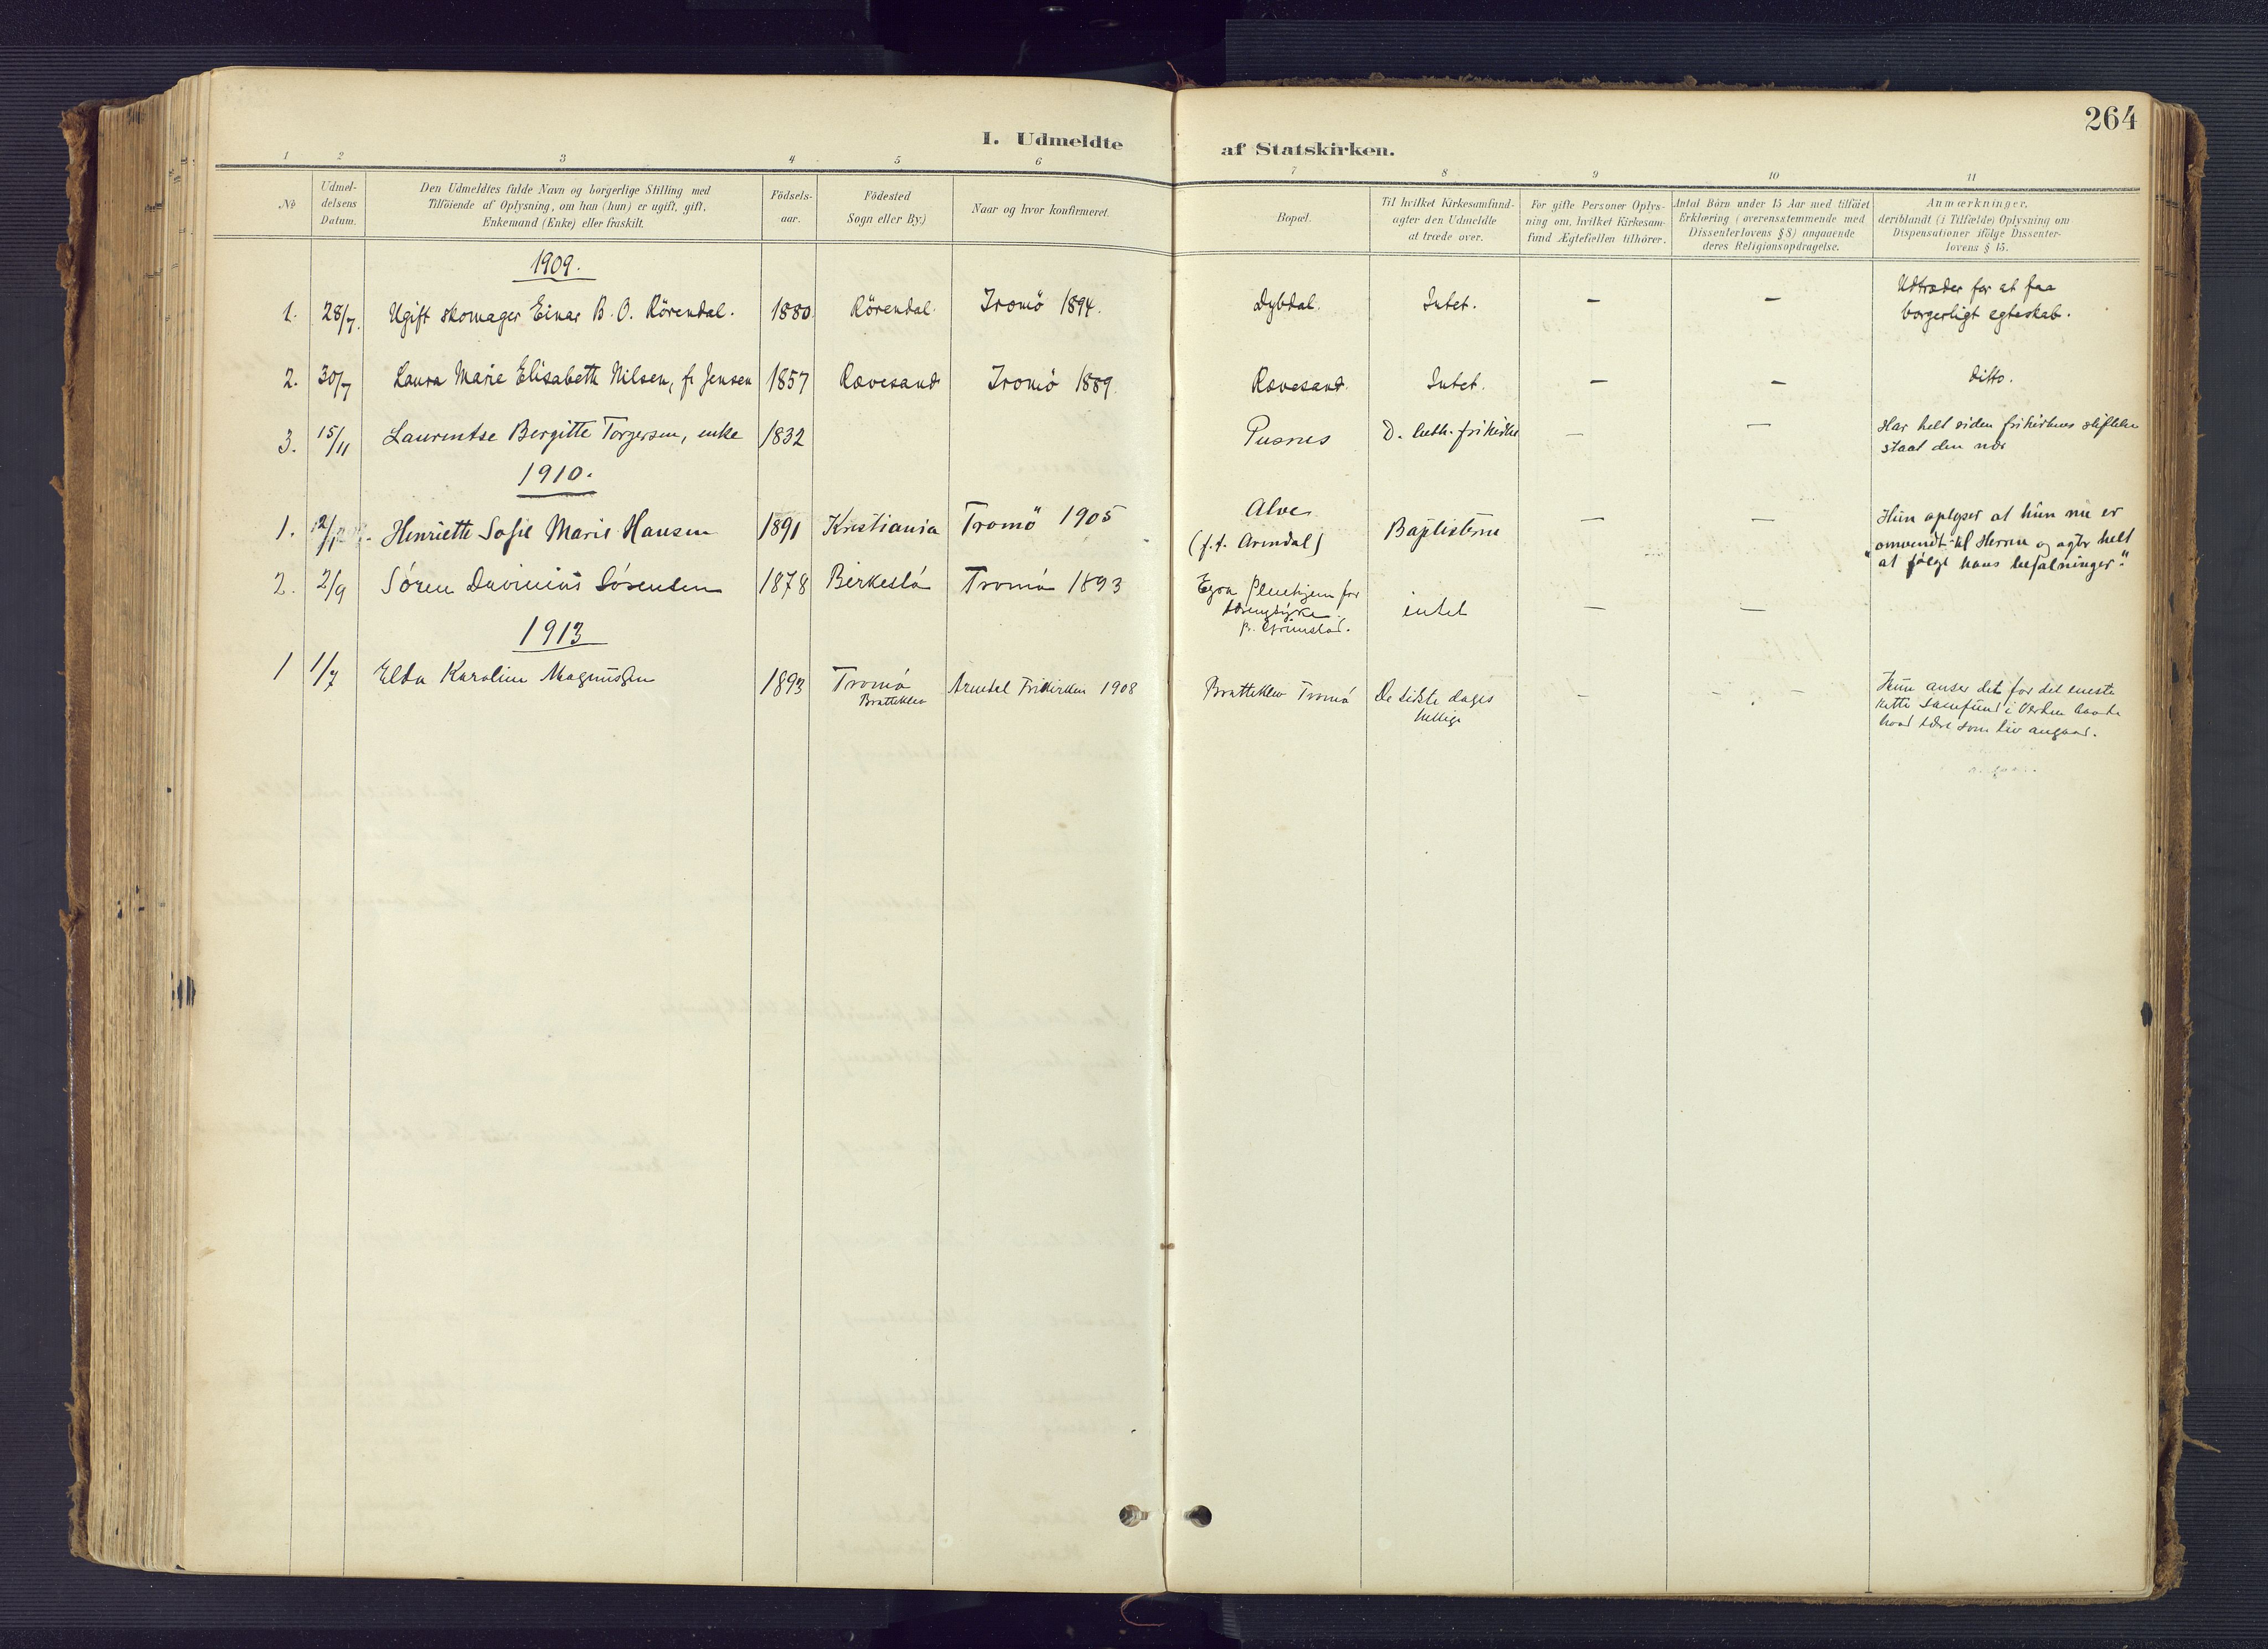 264
I. Udmeldte af Statskirken.
1 2 3 4 5 6 7 8 9 10 11
No
Udmel-
delsens
Datum.
Den Udmeldtes fulde Navn og borgerlige Stilling med
Tilföiende af Oplysning, om han (hun) er ugift, gift,
Enkemand (Enke) eller fraskilt.
Födsels-
aar.
Födested
Sogn eller By.)
Naar og hvor konfirmeret.
Bopæl.
Til hvilket Kirkesamfund-
agter den Udmeldte
at træde over.
For gifte Personer Oplys-
ning om, hvilket Kirkesam-
fund Ægtefællen tilhörer.
Antal Börn under 15 Aar med tilföiet
Erklæring (overensstemmende med
Dissenterlovens § 8) angaaende
deres Religionsopdragelse.
Anmærkninger,
deriblandt (i Tilfælde) Oplysning om
Dispensationer ifölge Dissenter-
lovens § 15.
1909.
1. 28/7. Ugift skomager Einar B. O. Rörendal. 1880 Rörendal. Tromö 1894. Dybdal. Intet. - - Udtræder for at faa
borgerligt egteskab.
2. 30/7 Laura Marie Elisabeth Nilsen, f. Jensen 1857 Rævesand Tromö 1889. Rævesand. Intet. - - ditto.
3. 15/11 Laurentse Bergitte Torgersen, enke 1832 Pusnes D. luth. frikirke - - Har helt siden frikirkens stiftelse
staat den nær
1910.
1. 12/1 Henriette Sofie Marie Hansen 1891 Kristiania Tromö 1905 Alve
(f.t. Arendal) Baptisterne - - Hun oplyser at hun nu er
"omvendt til Herren og agter helt
at følge hans befalninger."
2. 2/9 Sören Davinius Sörensen 1878 Birkeslö Tromö 1893 Pleiehjem for
p. Grimstad. intet - -
1913
1 1/7 Elda Karoline Magnussen 1893 Tromö
Bratteklev Arendal Frikirken 1908 Bratteklev Tromö De sidste dages
hellige - - - Hun anser det for det eneste
rette samfund i Verden baade
hvad lære som liv angaar.